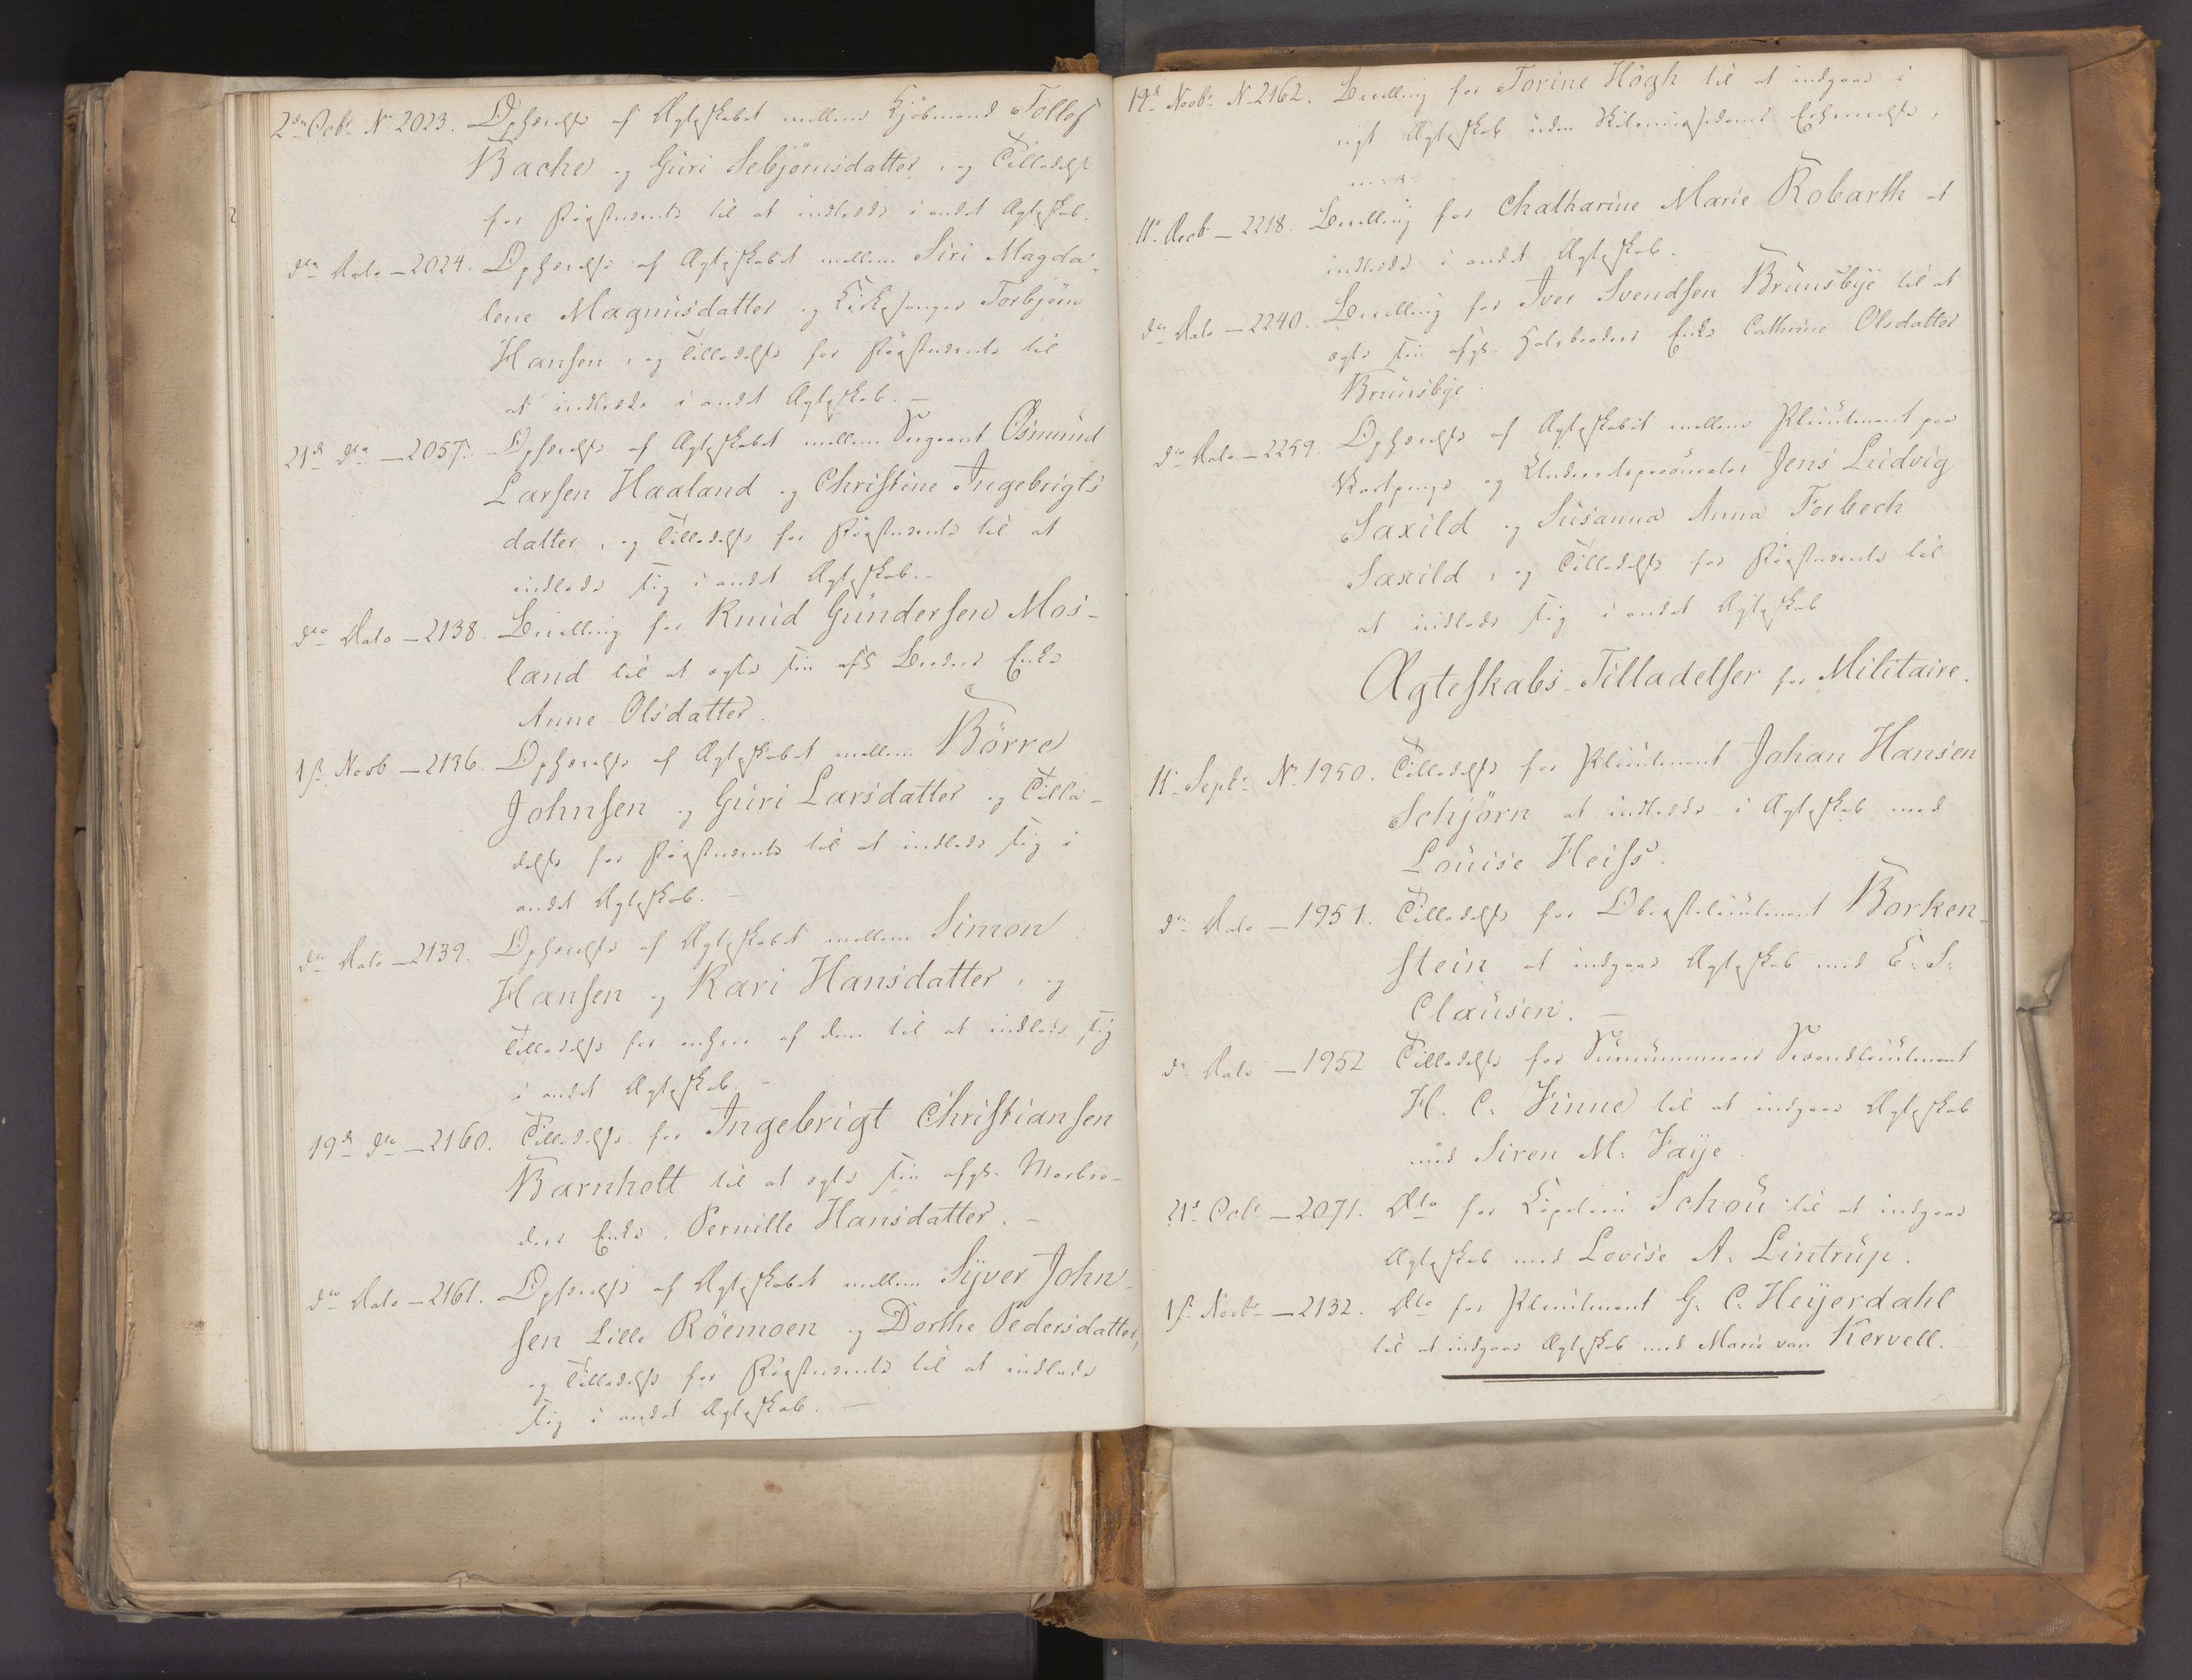 2den Octbr No 2023. Ophævelse af Ægteskabet mellem Kjöbmand Tollef
Bache og Guri Sebjörnsdatter, og Tilladelse
for Förstnævnte til at indtræde i andet Ægteskab.
dto Dato - 2024. Ophævelse af Ægteskabet mellem Siri Magda-
lene Magnusdatter og Kirkesanger Torbjörn
Hansen, og Tilladelse for Förstnævnte til
at indtræde i andet Ægteskab. -
21de dto - 2057. Ophævelse af Ægteskabet mellem Sergeant Osmund
Larsen Haaland og Christine Ingebrigts
datter, og Tilladelse for Förstnævnte til at
indlade sig i andet Ægteskab. -
dto Dato - 2138. Bevilling for Knud Gundersen Mos-
land til at ægte sin afd. Broders Enke
Anne Olsdatter.
1ste Novb - 2136. Ophævelse af Ægteskabet mellem Börre
Johnsen og Guri Larsdatter og Tilla-
delse for Förstnævnte til at indlade sig i
andet Ægteskab. -
dto Dato - 2139. Ophævelse af Ægteskabet mellem Simon
Hansen og Kari Hansdatter, og
Tilladelse for enhver af dem til at indlade sig
i andet Ægteskab. -
19de dto - 2160. Tilladelse for Ingebrigt Christiansen
Barnholt til at ægte sin afgd. Morbro-
ders Enke, Pernille Hansdatter. -
dto Dato - 2161. Ophævelse af Ægteskabet mellem Syver John-
sen Lille Röemoen og Dorthe Pedersdatter,
og Tilladelse for Förstnævnte til at indlade
sig i andet Ægteskab. -
19de Novbr No 2162. Bevilling for Torine Högh til at indgaae i
nyt Ægteskab uden Skilsmissedoms Erhvervelse,
m. v.
11te Decb - 2218. Bevilling for Chatharine Marie Robarth at
indtræde i andet Ægteskab.
dto Dato - 2240. Bevilling for Iver Svendsen Brunsbye til at
ægte sin afgd. Halvbroders Enke Cathrine Olsdatter
Brunsbye.
dto Dato - 2259. Ophævelse af Ægteskabet mellem Pr.lieutenant paa
Vartpenge og Underretsprocurator Jens Ludvig
Saxild og Susanna Anna Forbech
Saxild, og Tilladelse for Förstnævnte til
at indlade sig i andet Ægteskab
Ægteskabs-Tilladelser for Militaire.
11te Septbr No 1950. Tilladelse for Pr.lieutenant Johan Hansen
Schjörn at indtræde i Ægteskab med
Louise Heiss.
dto Dato - 1951. Tilladelse for Oberstlieutenant Borken-
stein at indgaae Ægteskab med E. S.
Clausen. -
dto Dato - 1952 Tilladelse for Secondlieutenant
H. C. Finne til at indgaae Ægteskab
med Siren M. Faye.
21de Octbr - 2071. Dto for Capitain Schou til at indgaae
Ægteskab med Lovise A. Lintrup.
1ste Novbr - 2132. Dto for Pr.lieutenant G. C. Heyerdahl
til at indgaae Ægteskab med Marie van Kervell.